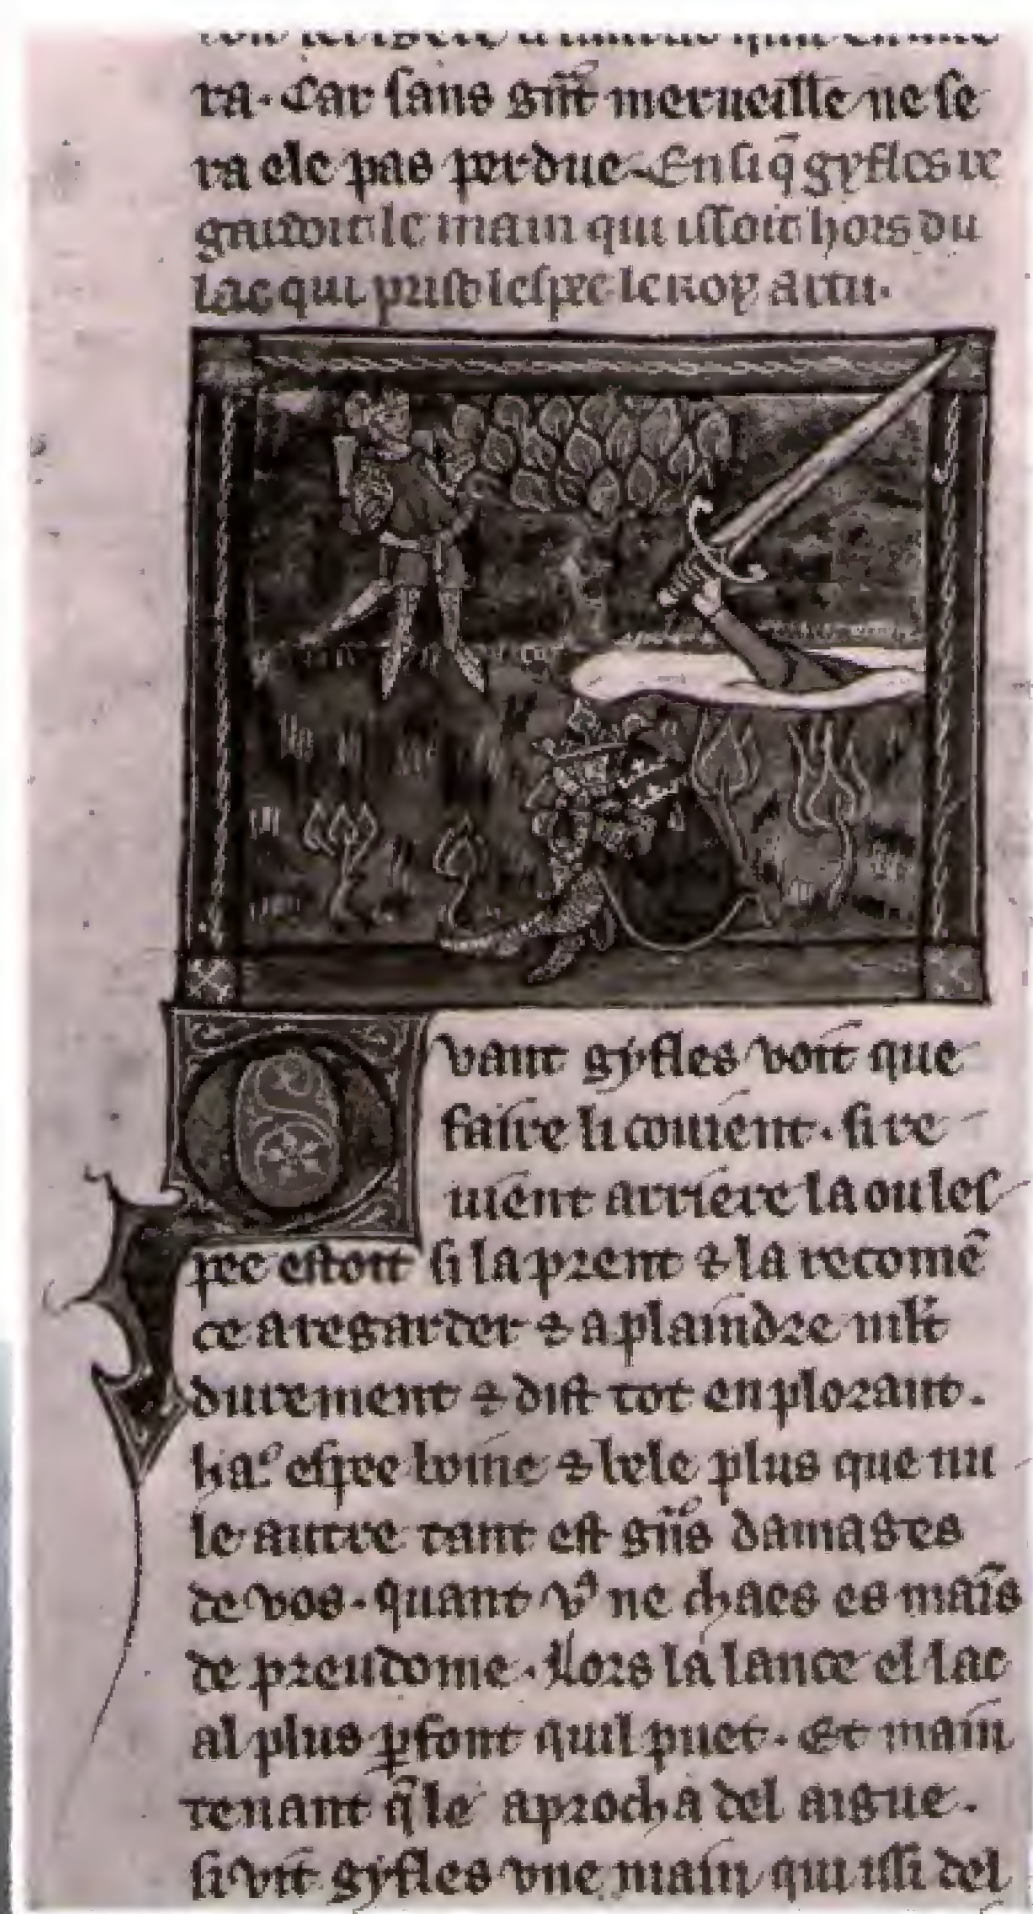 ra. Car sans grãt merueille ne se
ra ele pas perdue. Ensi q̃ gyfles re
gardoit le main qui issoit hors du
lac qui prist lespee le roy artu.
Quant gyfles voit que
faire li couient. si re
uient arriere la ou les
pee estoit si la prent ⁊ la recomẽ
ce a regarder ⁊ a plaindre mlt
durement ⁊ dist tot en plorant.
ha. espee boine ⁊ bele plus que nu
le autre tant est grãs damages
de vos. quant vꝰ ne chaes es maĩs
de preudome. Lors la lance el lac
al plus ꝑfont quil puet. Et main
tenant q̃le aprocha del aigue.
si vit gyfles vne main qui issi del